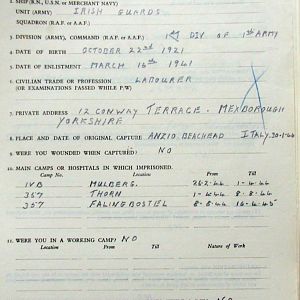 1. SHIP (R.N., U.S.N. or MERCHANT NAVY)
UNIT (ARMY) IRISH GUARDS
SQUADRON (R.A.F. or A.A.F.)
3. DIVISION (ARMY), COMMAND (R.A.F. or A.A.F.) DIV OF 1ST ARMY
4. DATE OF BIRTH OCTOBER 22nd 1921
5. DATE OF ENLISTMENT MARCH 16th 1941
6. CIVILIAN TRADE OR PROFESSION LABOURER
(OR EXAMINATIONS PASSED WHILE P/W)
7. PRIVATE ADDRESS 12 CONWAY TERRACE. MEXBOROUGH
YORKSHIRE
8. PLACE AND DATE OF ORIGINAL CAPTURE ANZIO BEACHEAD ITALY. 30-1-44
9. WERE YOU WOUNDED WHEN CAPTURED? NO
10. MAIN CAMPS OR HOSPITALS IN WHICH IMPRISONED.
Camp No. Location From Till
IVB MULBERG. 26-2-44 1-4-44
357 THORN 1-4-44 8-8-44
357 FALINGBOSTEL 8-8-44 16-4-45
11. WERE YOU IN A WORKING CAMP? NO
Location From Till Nature of Work